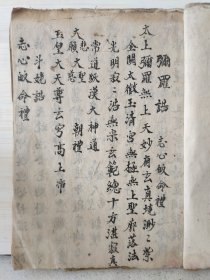 彌羅誥　志心皈命禮
太上彌羅無上天妙有玄真境渺渺紫
金闕太微玉清宮無極無上聖廓落法
光明寂寂浩無宗玄範總十方湛寂真
常道恢漠大神通　朝禮
大悲大願大聖大慈
玉皇大天尊玄穹高上帝
斗姥誥
志心皈命禮